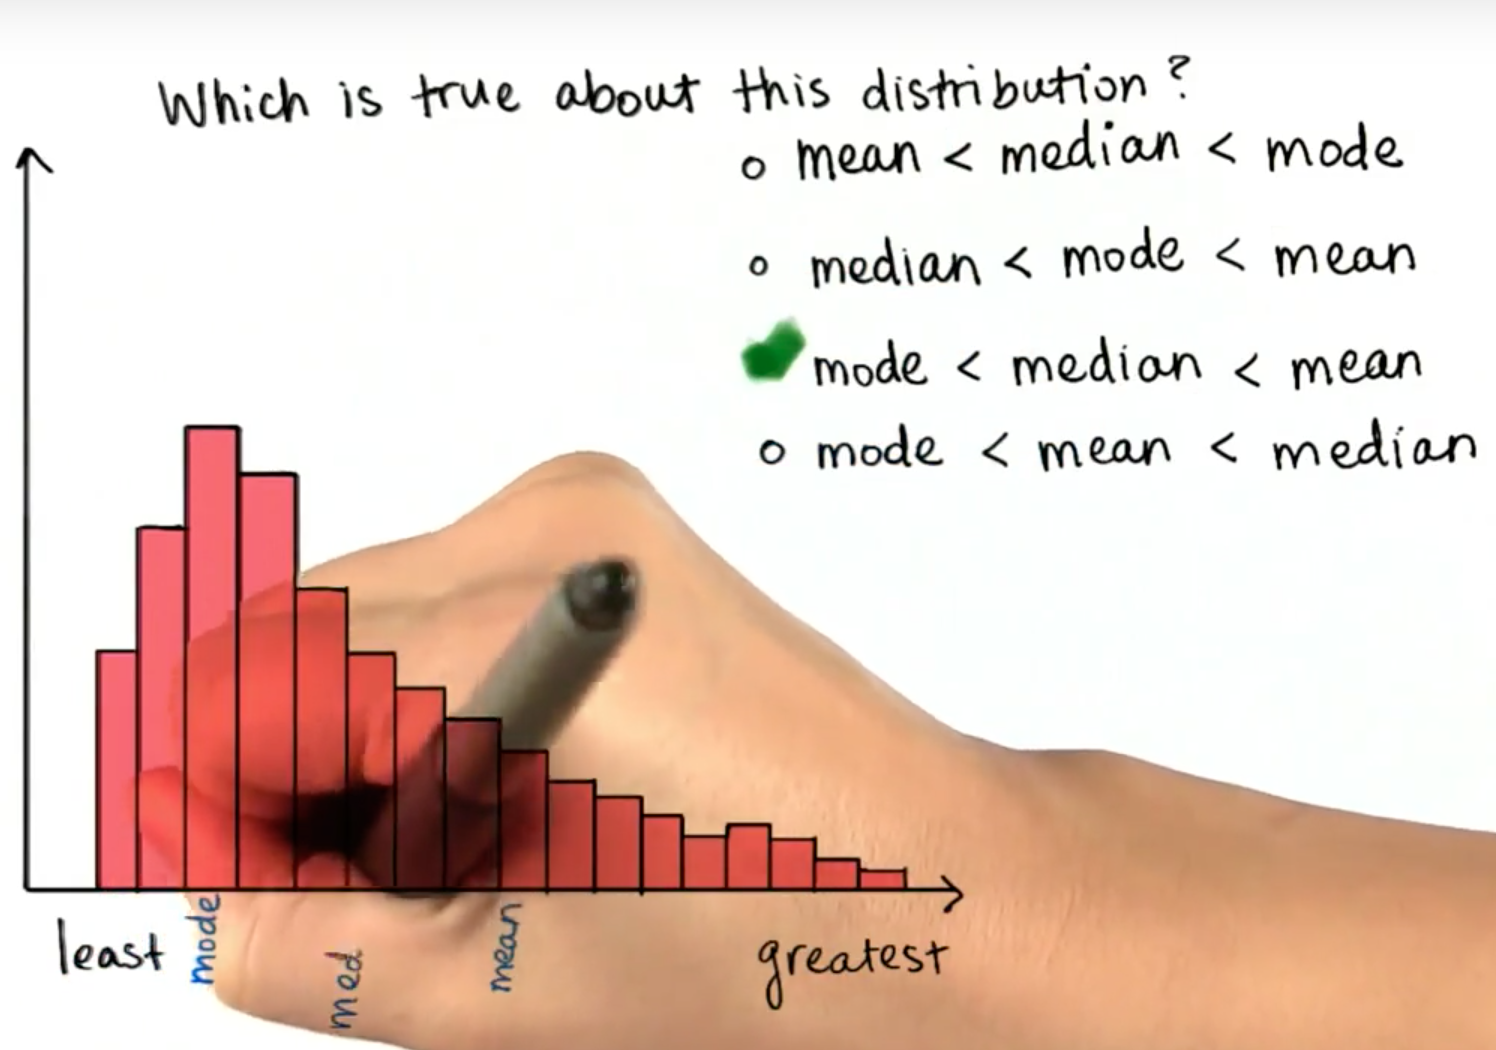 Which is true about this distribution?
o mean < median < mode
o median < mode < mean
mode < median < mean
o mode < mean < median
least
mode
med
mean
greatest